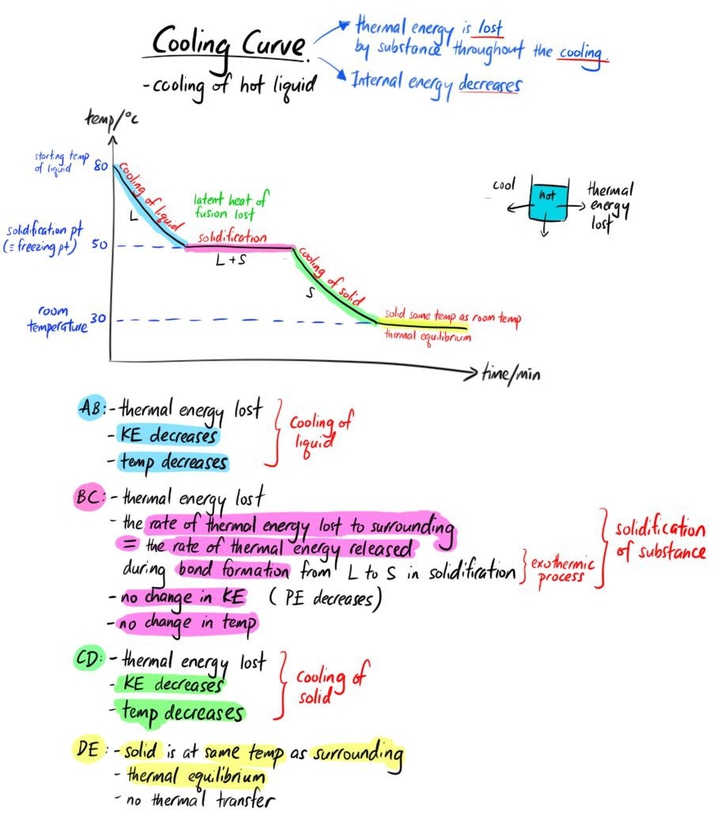 Cooling Curve.
-cooling of hot liquid
thermal energy is lost
by substance throughout the cooling.
Internal energy decreases
temp/°c
starting temp
of liquid
80
cooling of liquid
L
latent heat of
fusion lost
solidification pt
(= freezing pt)
50
solidification
L+S
cooling of solid
S
room
temperature
30
solid same temp as room temp
thermal equilibrium
time/min
cool
hot
thermal
energy
lost
AB:- thermal energy lost
- KE decreases
- temp decreases
cooling of
liquid
BC:- thermal energy lost
- the rate of thermal energy lost to surrounding
= the rate of thermal energy released
during bond formation from L to S in solidification
exothermic
process
- no change in KE (PE decreases)
- no change in temp
solidification
of substance
CD:- thermal energy lost
- KE decreases
- temp decreases
cooling of
solid
DE:- solid is at same temp as surrounding
- thermal equilibrium
- no thermal transfer